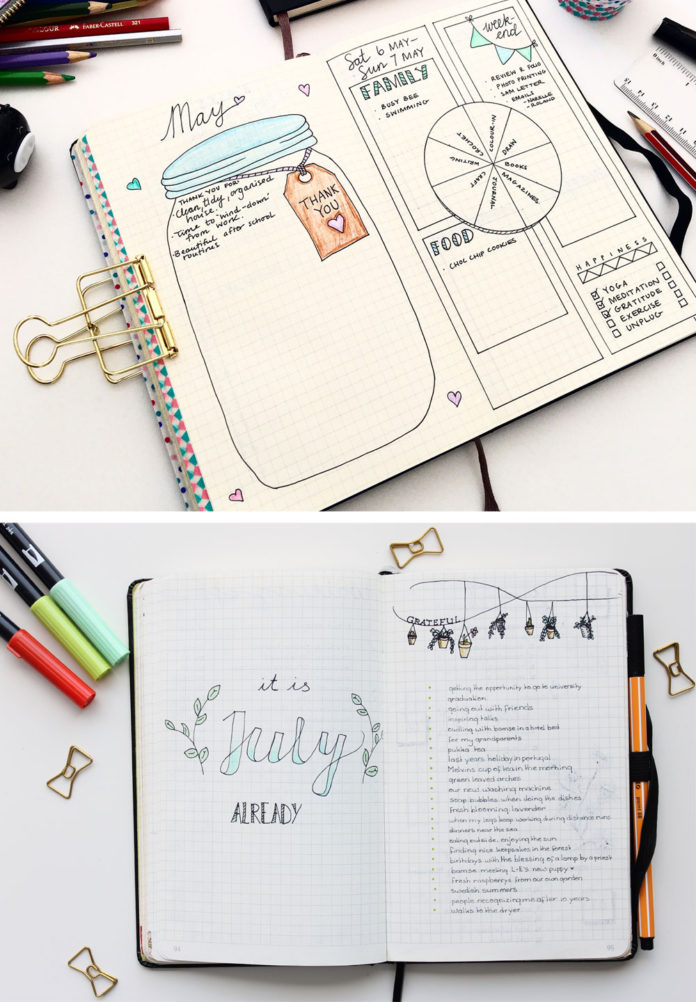 FABER-CASTELL 321
May
THANK YOU FOR
· Clean, tidy, organised
house.
· Time to 'wind-down'
from work.
· Beautiful after school
routines
THANK
YOU
Sat 6 MAY -
Sun 7 MAY
FAMILY
· BUSY BEE
· SWIMMING
week-
end
· REVIEW & FOLIO
· PHOTO PRINTING
· SAM LETTER
· EMAILS
COLOUR-IN
DRAW
BOOKS
MAGAZINES
JOURNAL
CRAFT
WRITING
CROCHET
FOOD
· CHOC CHIP COOKIES
HAPPINESS
YOGA
MEDITATION
GRATITUDE
EXERCISE
UNPLUG
it is
July
ALREADY
94
GRATEFUL
getting the opportunity to go to university
graduation
going out with friends
inspiring talks
cuddling with bamse in a hotel bed
for my grandparents
pukka tea
last years holiday in portugal
Melvins cup of tea in the morning
green leaved arches
our new washing machine
soap bubbles when doing the dishes
fresh blooming lavender
when my legs keep working during distance runs
dinners near the sea
eating outside, enjoying the sun
finding nice keepsakes in the forest
birthdays with the blessing of a lamp by a priest
bamse meeting L-E's new puppy
fresh raspberrys from our own garden
swedish summers
people recognizing me after 10 years
walks to the dryer
95